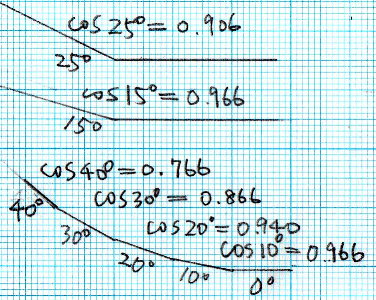 cos25°= 0.906
25°
cos15°= 0.966
15°
cos40°=0.766
cos30°= 0.866
40°
cos20°=0.940
30°
cos10°= 0.966
20°
10°
0°